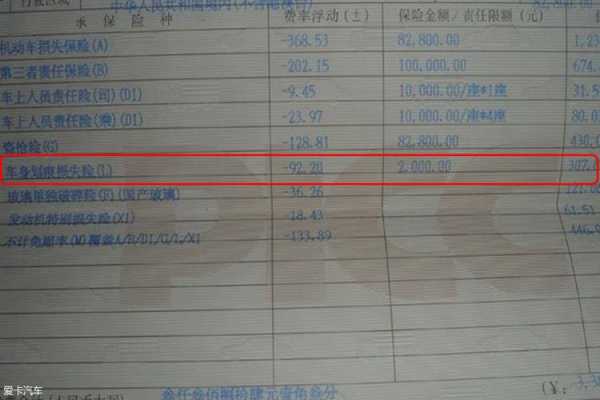 中华人民共和国境内(不含港澳台)
承 保 险 种 费率浮动(±) 保险金额/责任限额(元)
机动车损失保险(A) -368.53 82,800.00 1,23
第三者责任保险(B) -202.15 100,000.00 674.
车上人员责任险(司)(D1) -9.45 10,000.00/座*1座 31.5
车上人员责任险(乘)(D1) -23.97 10,000.00/座*4座 80.0
盗抢险(G) -128.81 82,800.00 430.0
车身划痕损失险(L) -92.20 2,000.00 307.
玻璃单独破碎险(F)(国产玻璃) -36.26 121.0
发动机特别损失险(X1) -18.43 61.51
不计免赔率(M)覆盖A/B/D1/G/L/X1 -133.89 446.9
PICC
(¥: 3,3
叁仟叁佰 拾肆元壹角叁分
爱卡汽车